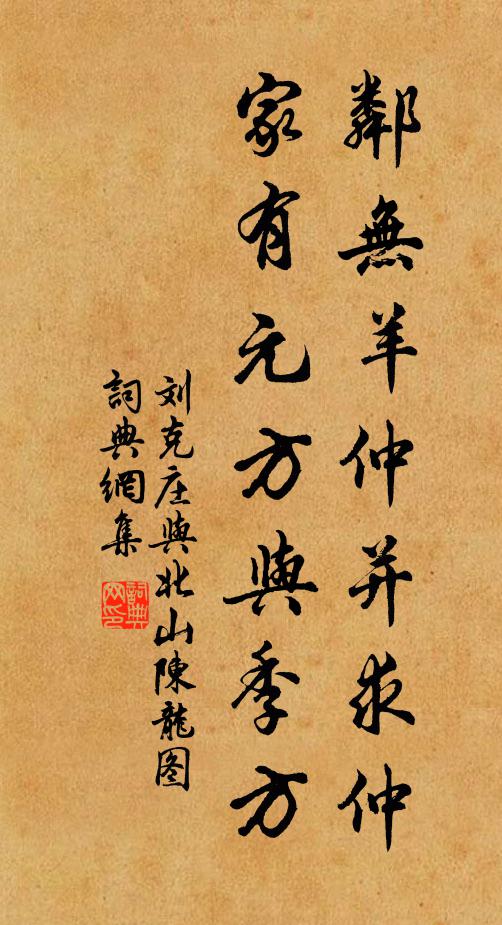 鄰無羊仲并求仲
家有元方與季方
刘克庄與北山陳龍图
詞典網集
詞典
网印